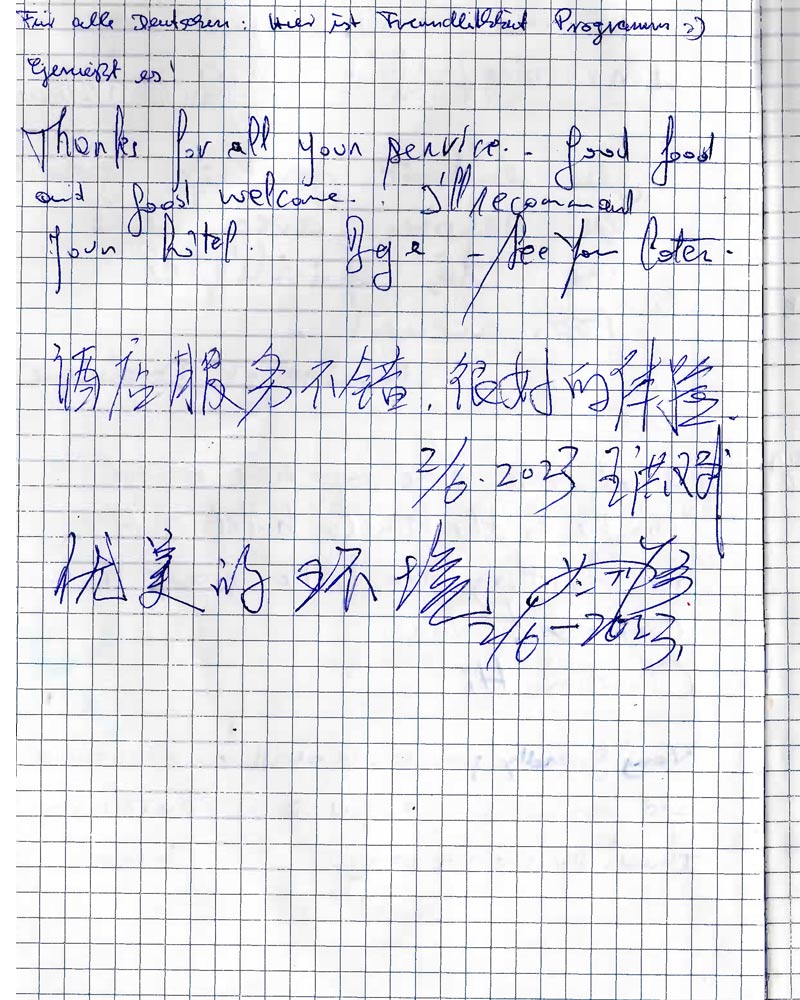 Für alle Deutschen: Hier ist Freundlichkeit Programm :)
Genießt es!
Thanks for all your service.. Good food
and good welcome.. I'll recommand
your hôtel. Bye - See You Later.
酒店服务不错.很好的体验.
2/6.2023 王洪斌
优美的环境
2/6-2023.